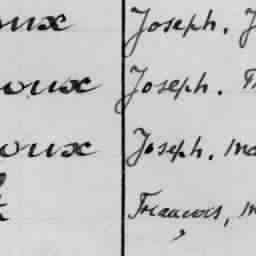 oux Joseph. J
oux Joseph.
oux Joseph. Ma
François, M